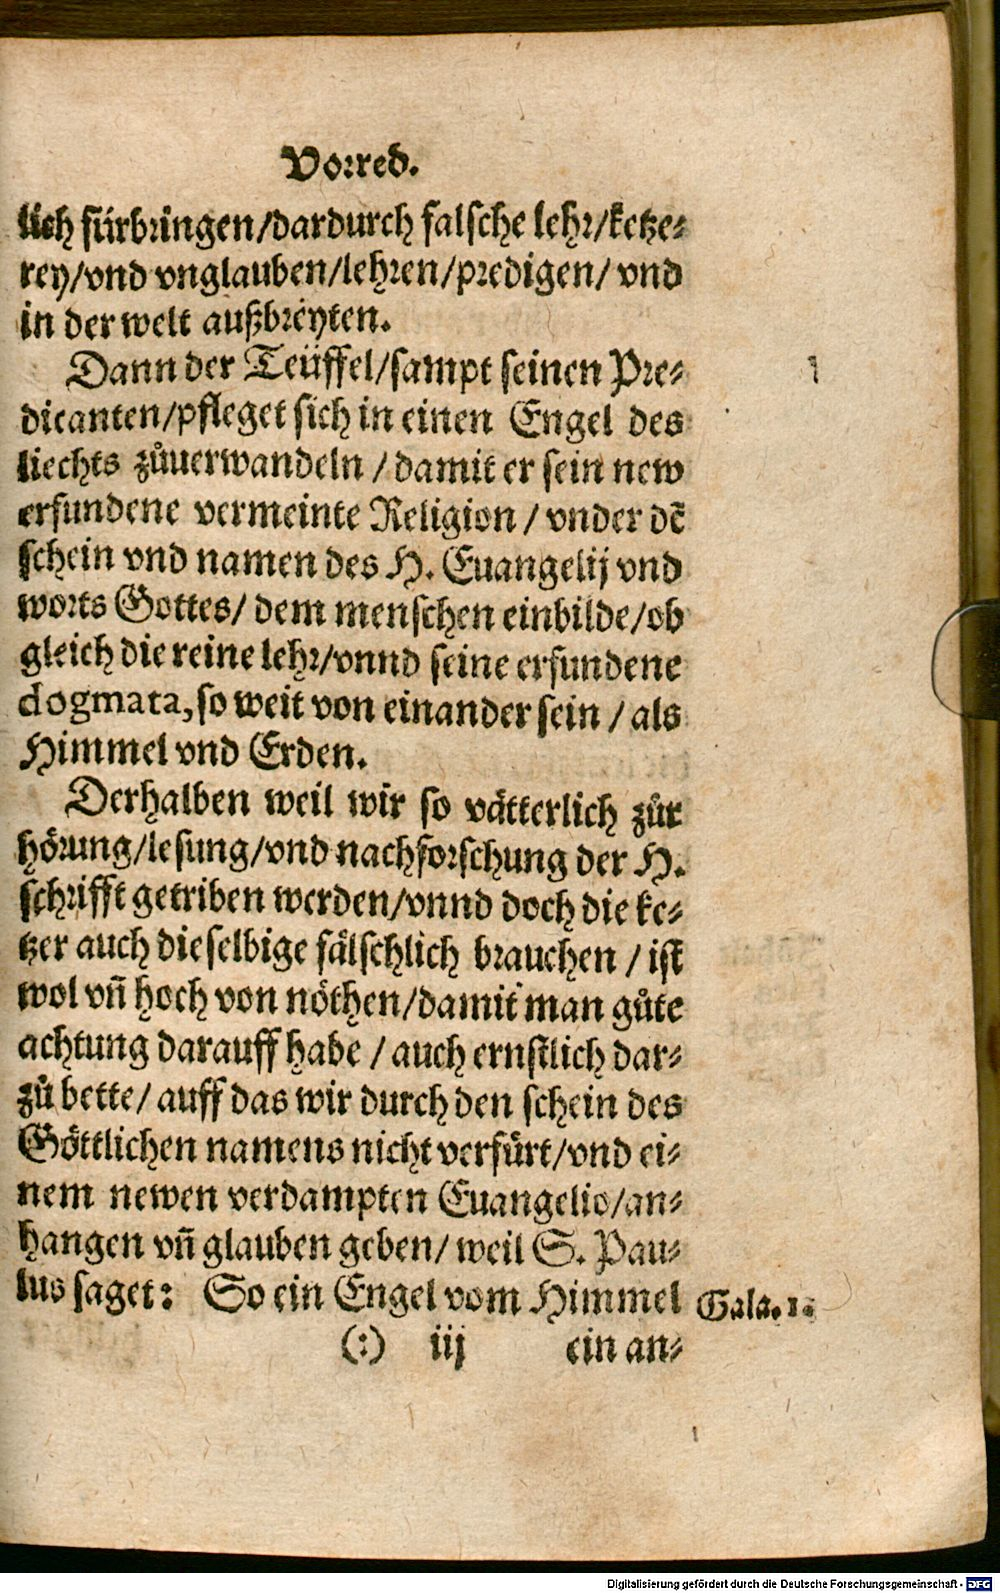 Vorred.
lich fürbringen/dardurch falsche lehr/ketze⸗
rey/vnd vnglauben/lehren/predigen/ vnd
in der welt außbreyten.
Dann der Teüffel/sampt seinen Pre⸗
dicanten/pfleget sich in einen Engel des
liechts zůuerwandeln / damit er sein new
erfundene vermeinte Religion / vnder dē
schein vnd namen des H. Euangelij vnd
worts Gottes/ dem menschen einbilde/ob
gleich die reine lehr/vnnd seine erfundene
dogmata, so weit von einander sein / als
Himmel vnd Erden.
Derhalben weil wir so vätterlich zůr
hörung/lesung/vnd nachforschung der H.
schrifft getriben werden/vnnd doch die ke⸗
tzer auch dieselbige fälschlich brauchen / ist
wol vñ hoch von nöthen/damit man gůte
achtung darauff habe / auch ernstlich dar⸗
zů bette/ auff das wir durch den schein des
Göttlichen namens nicht verfürt/vnd ei⸗
nem newen verdampten Euangelio/an⸗
hangen vñ glauben geben/ weil S. Pau⸗
lus saget: So ein Engel vom Himmel
Gala. 1.
(:) iij ein an⸗
Digitalisierung gefördert durch die Deutsche Forschungsgemeinschaft - DFG